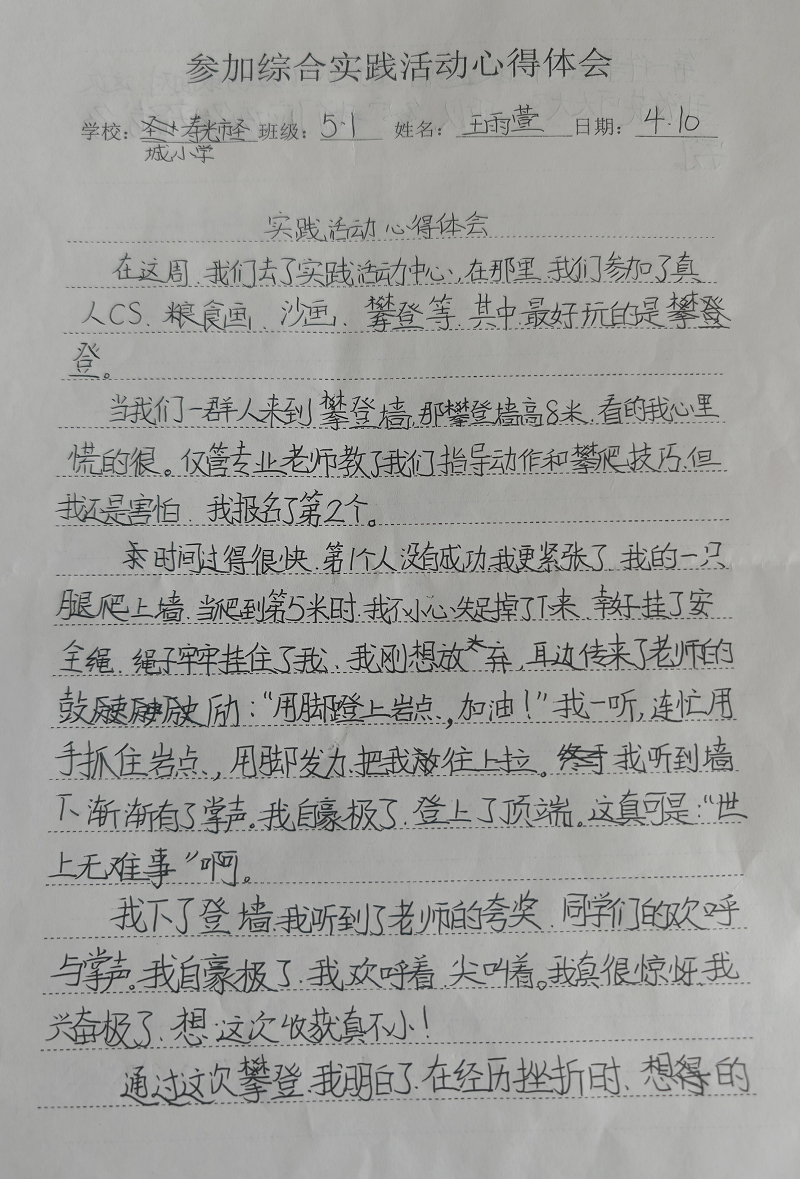 参加综合实践活动心得体会
学校：寿光市圣 班级：5.1 姓名：王雨萱 日期：4.10
城小学
实践活动心得体会
在这周，我们去了实践活动中心，在那里，我们参加了真
人CS、粮食画、沙画、攀登等，其中最好玩的是攀登
登。
当我们一群人来到攀登墙，那攀登墙高8米，看的我心里
慌的很。仅管专业老师教了我们指导动作和攀爬技巧，但
我还是害怕，我报名了第2个。
时间过得很快，第1个人没有成功，我更紧张了，我的一只
腿爬上墙，当爬到第5米时，我不小心失足掉了下来，幸好挂了安
全绳，绳子牢牢挂住了我，我刚想放弃，耳边传来了老师的
鼓励：“用脚蹬上岩点，加油！”我一听，连忙用
手抓住岩点，用脚发力，把我往上拉。我听到墙
下渐渐有了掌声。我自豪极了，登上了顶端。这真可是：“世
上无难事”啊。
我下了登墙，我听到了老师的夸奖，同学们的欢呼
与掌声。我自豪极了，我欢呼着，尖叫着。我真很惊讶，我
兴奋极了，想：这次收获真不小！
通过这次攀登，我明白了，在经历挫折时，想得的